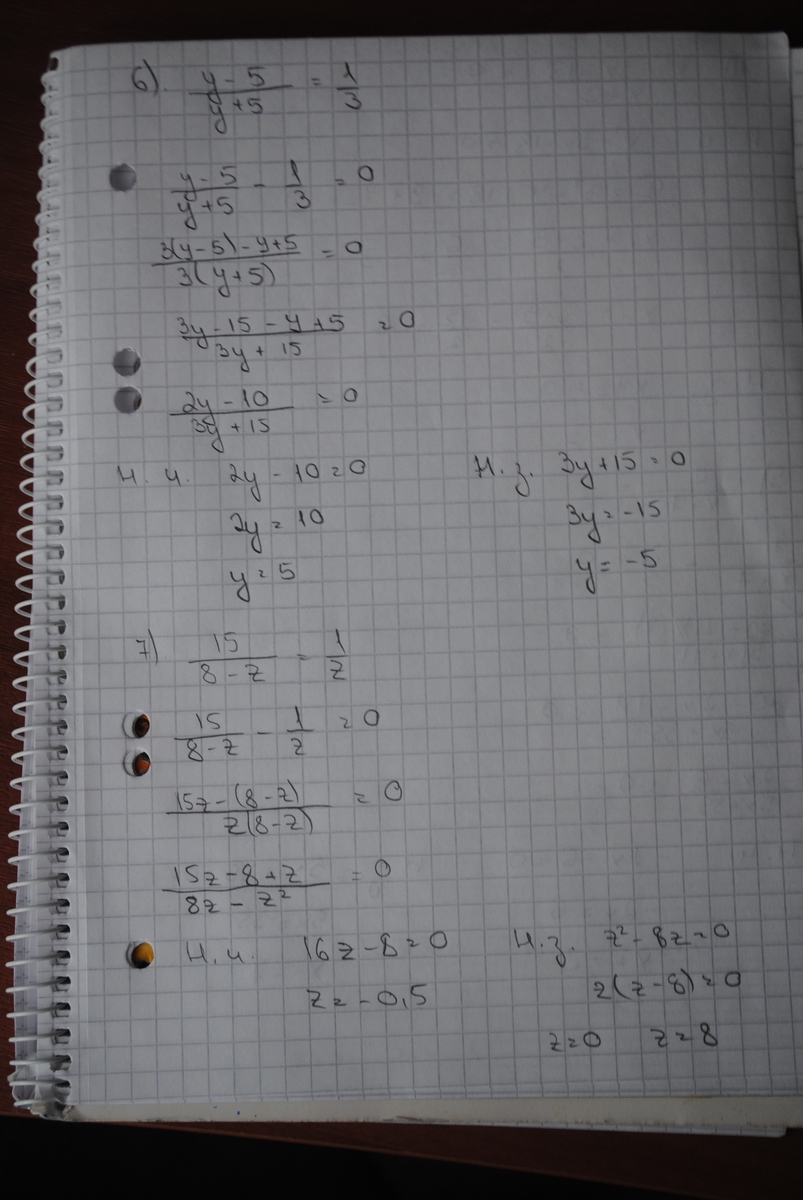 6). (y-5)/(y+5) = 1/3
(y-5)/(y+5) - 1/3 = 0
(3(y-5)-y+5)/(3(y+5)) = 0
(3y-15-y+5)/(3y+15) = 0
(2y-10)/(3y+15) = 0
Н. и. 2y-10=0 Н. з. 3y+15=0
2y=10 3y=-15
y=5 y=-5
7) 15/(8-z) = 1/z
15/(8-z) - 1/z = 0
(15z-(8-z))/(z(8-z)) = 0
(15z-8+z)/(8z-z²) = 0
Н. и. 16z-8=0 Н. з. z²-8z=0
z=-0,5 z(z-8)=0
z=0 z=8